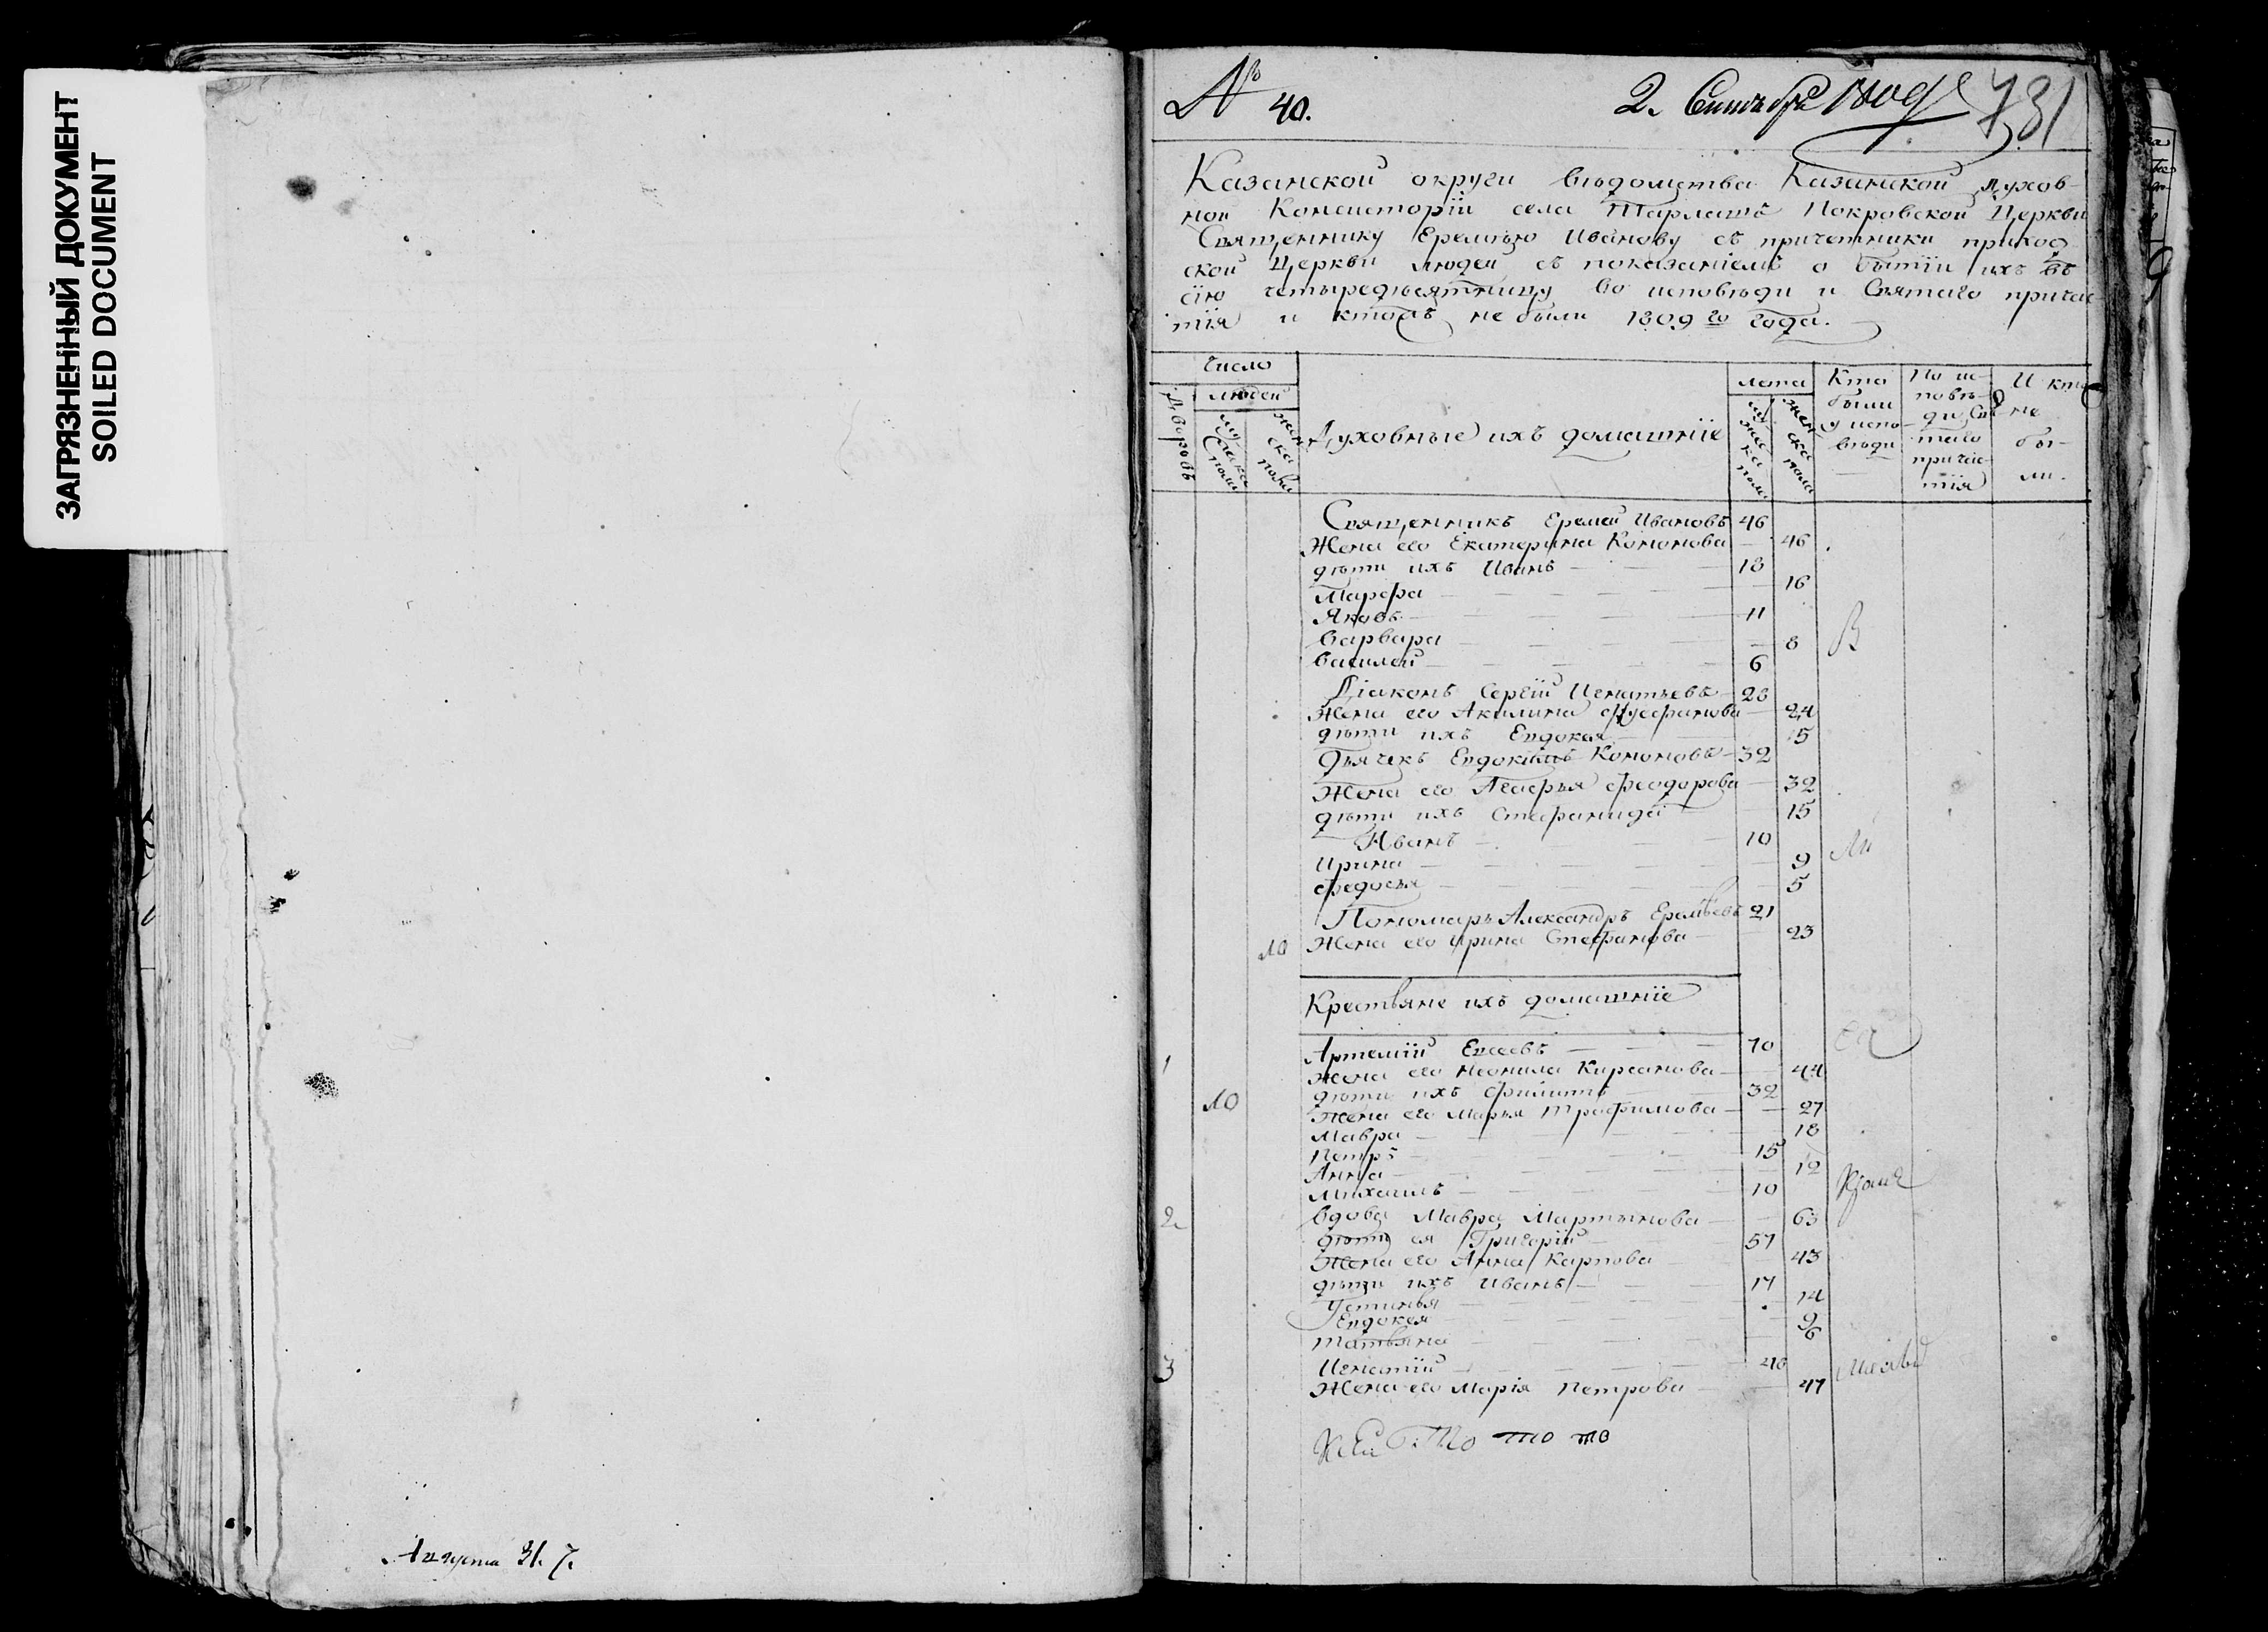 ЗАГРЯЗНЕННЫЙ ДОКУМЕНТ
SOILED DOCUMENT
Августа 31. 7.
№ 40.
2. 731
Казанской округи вѣдомства Казанской духов-
ной Консисторїи села Тарлашѣ Покровской Церкви
Священнику Еремѣю Иванову съ причетники приход
ской Церкви людей съ показанїемъ о бытїи ихъ въ
сїю четыредесятницу во исповѣди и Святаго причас
тїя и ктожъ не были 1809 го года.
Число
людей
Дворовъ
муска пола
женска пола
Духовные ихъ домашнїе
лета
мужска пола
женска пола
Кто были у исповѣди
По исповѣди Святаго причастїя
И кто не были.
Священникъ Еремей Ивановъ 46
Жена его Екатерина Кононова 46
дѣти ихъ Иванъ 18
Марфа 16
Яковъ 11
Варвара 8
Василей 6
Дїаконъ Сергїй Игнатьевъ 28
Жена его Акилина 24
дѣти ихъ Евдокея 5
Дьячекъ Евдокимъ Кононовъ 32
Жена его Агафья Феодорова 32
дѣти ихъ Стефанида 15
Иванъ 10
Ирина 9
Федосья 5
Пономарь Александръ Еремѣевъ 21
10 Жена его Ирина Стефанова 23
Крестьяне ихъ домашнїе
1 Артемїй Евсеевъ 70
Жена его Неонила Кирсанова 44
дѣти ихъ Филиппъ 32
10 Жена его Марья Трофимова 27
Мавра 18
Петръ 15
Анна 12
Михаилъ 10
2 Вдова Мавра Мартынова 63
дѣти ея Григорїй 57
Жена его Анна Карпова 43
дѣти ихъ Иванъ 17
Устинья 14
Евдокея 9
Татьяна 6
3 Игнатїй 40
Жена его Марїя Петрова 47
то то